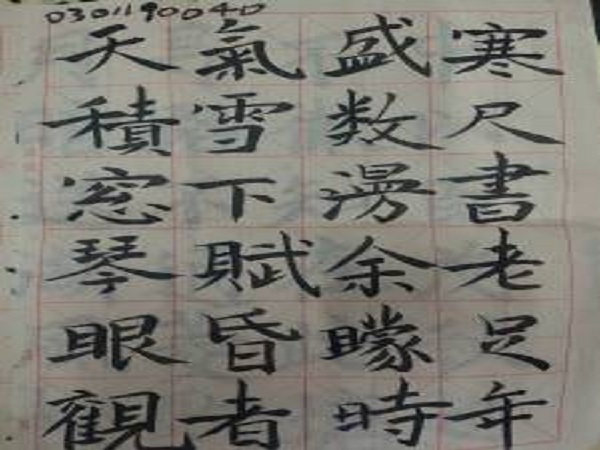 0301190040
天氣盛寒
積雪数尺
窓下漫書
琴賦余老
眼昏矇足
觀者時年